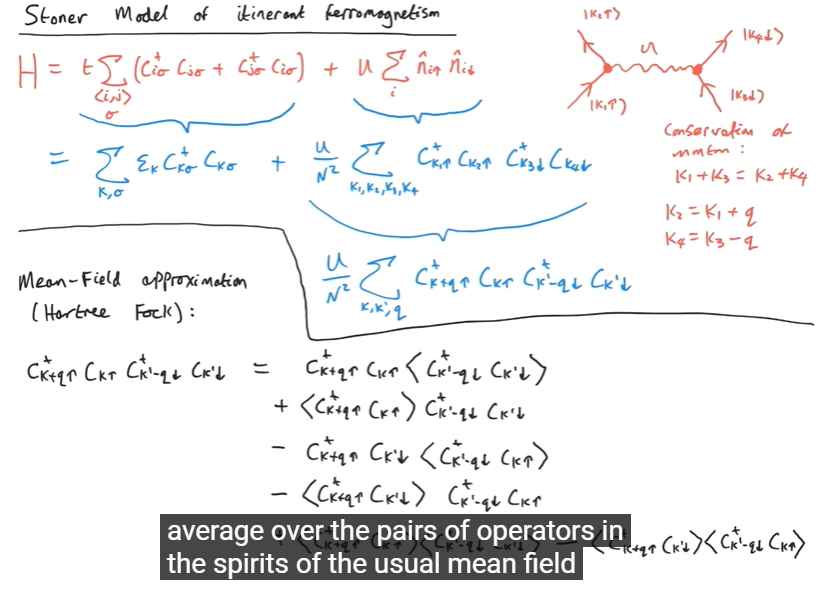 Stoner Model of itinerant ferromagnetism
H = t Σ_{<i,j> σ} (C†_{iσ} C_{jσ} + C†_{jσ} C_{iσ}) + U Σ_i n̂_{i↑} n̂_{i↓}
= Σ_{K,σ} ε_K C†_{Kσ} C_{Kσ} + U/N² Σ_{K₁,K₂,K₃,K₄} C†_{K₁↑} C_{K₂↑} C†_{K₃↓} C_{K₄↓}
U/N² Σ_{K,K',q} C†_{K+q↑} C_{K↑} C†_{K'-q↓} C_{K'↓}
|K₂↑⟩
|K₄↓⟩
U
|K₁↑⟩
|K₃↓⟩
Conservation of
mmtm :
K₁ + K₃ = K₂ + K₄
K₂ = K₁ + q
K₄ = K₃ - q
Mean-Field approximation
(Hartree Fock) :
C†_{K+q↑} C_{K↑} C†_{K'-q↓} C_{K'↓} = C†_{K+q↑} C_{K↑} ⟨C†_{K'-q↓} C_{K'↓}⟩
+ ⟨C†_{K+q↑} C_{K↑}⟩ C†_{K'-q↓} C_{K'↓}
- C†_{K+q↑} C_{K'↓} ⟨C†_{K'-q↓} C_{K↑}⟩
- ⟨C†_{K+q↑} C_{K'↓}⟩ C†_{K'-q↓} C_{K↑}
⟨C†_{K+q↑} C_{K'↓}⟩⟨C†_{K'-q↓} C_{K↑}⟩
average over the pairs of operators in
the spirits of the usual mean field